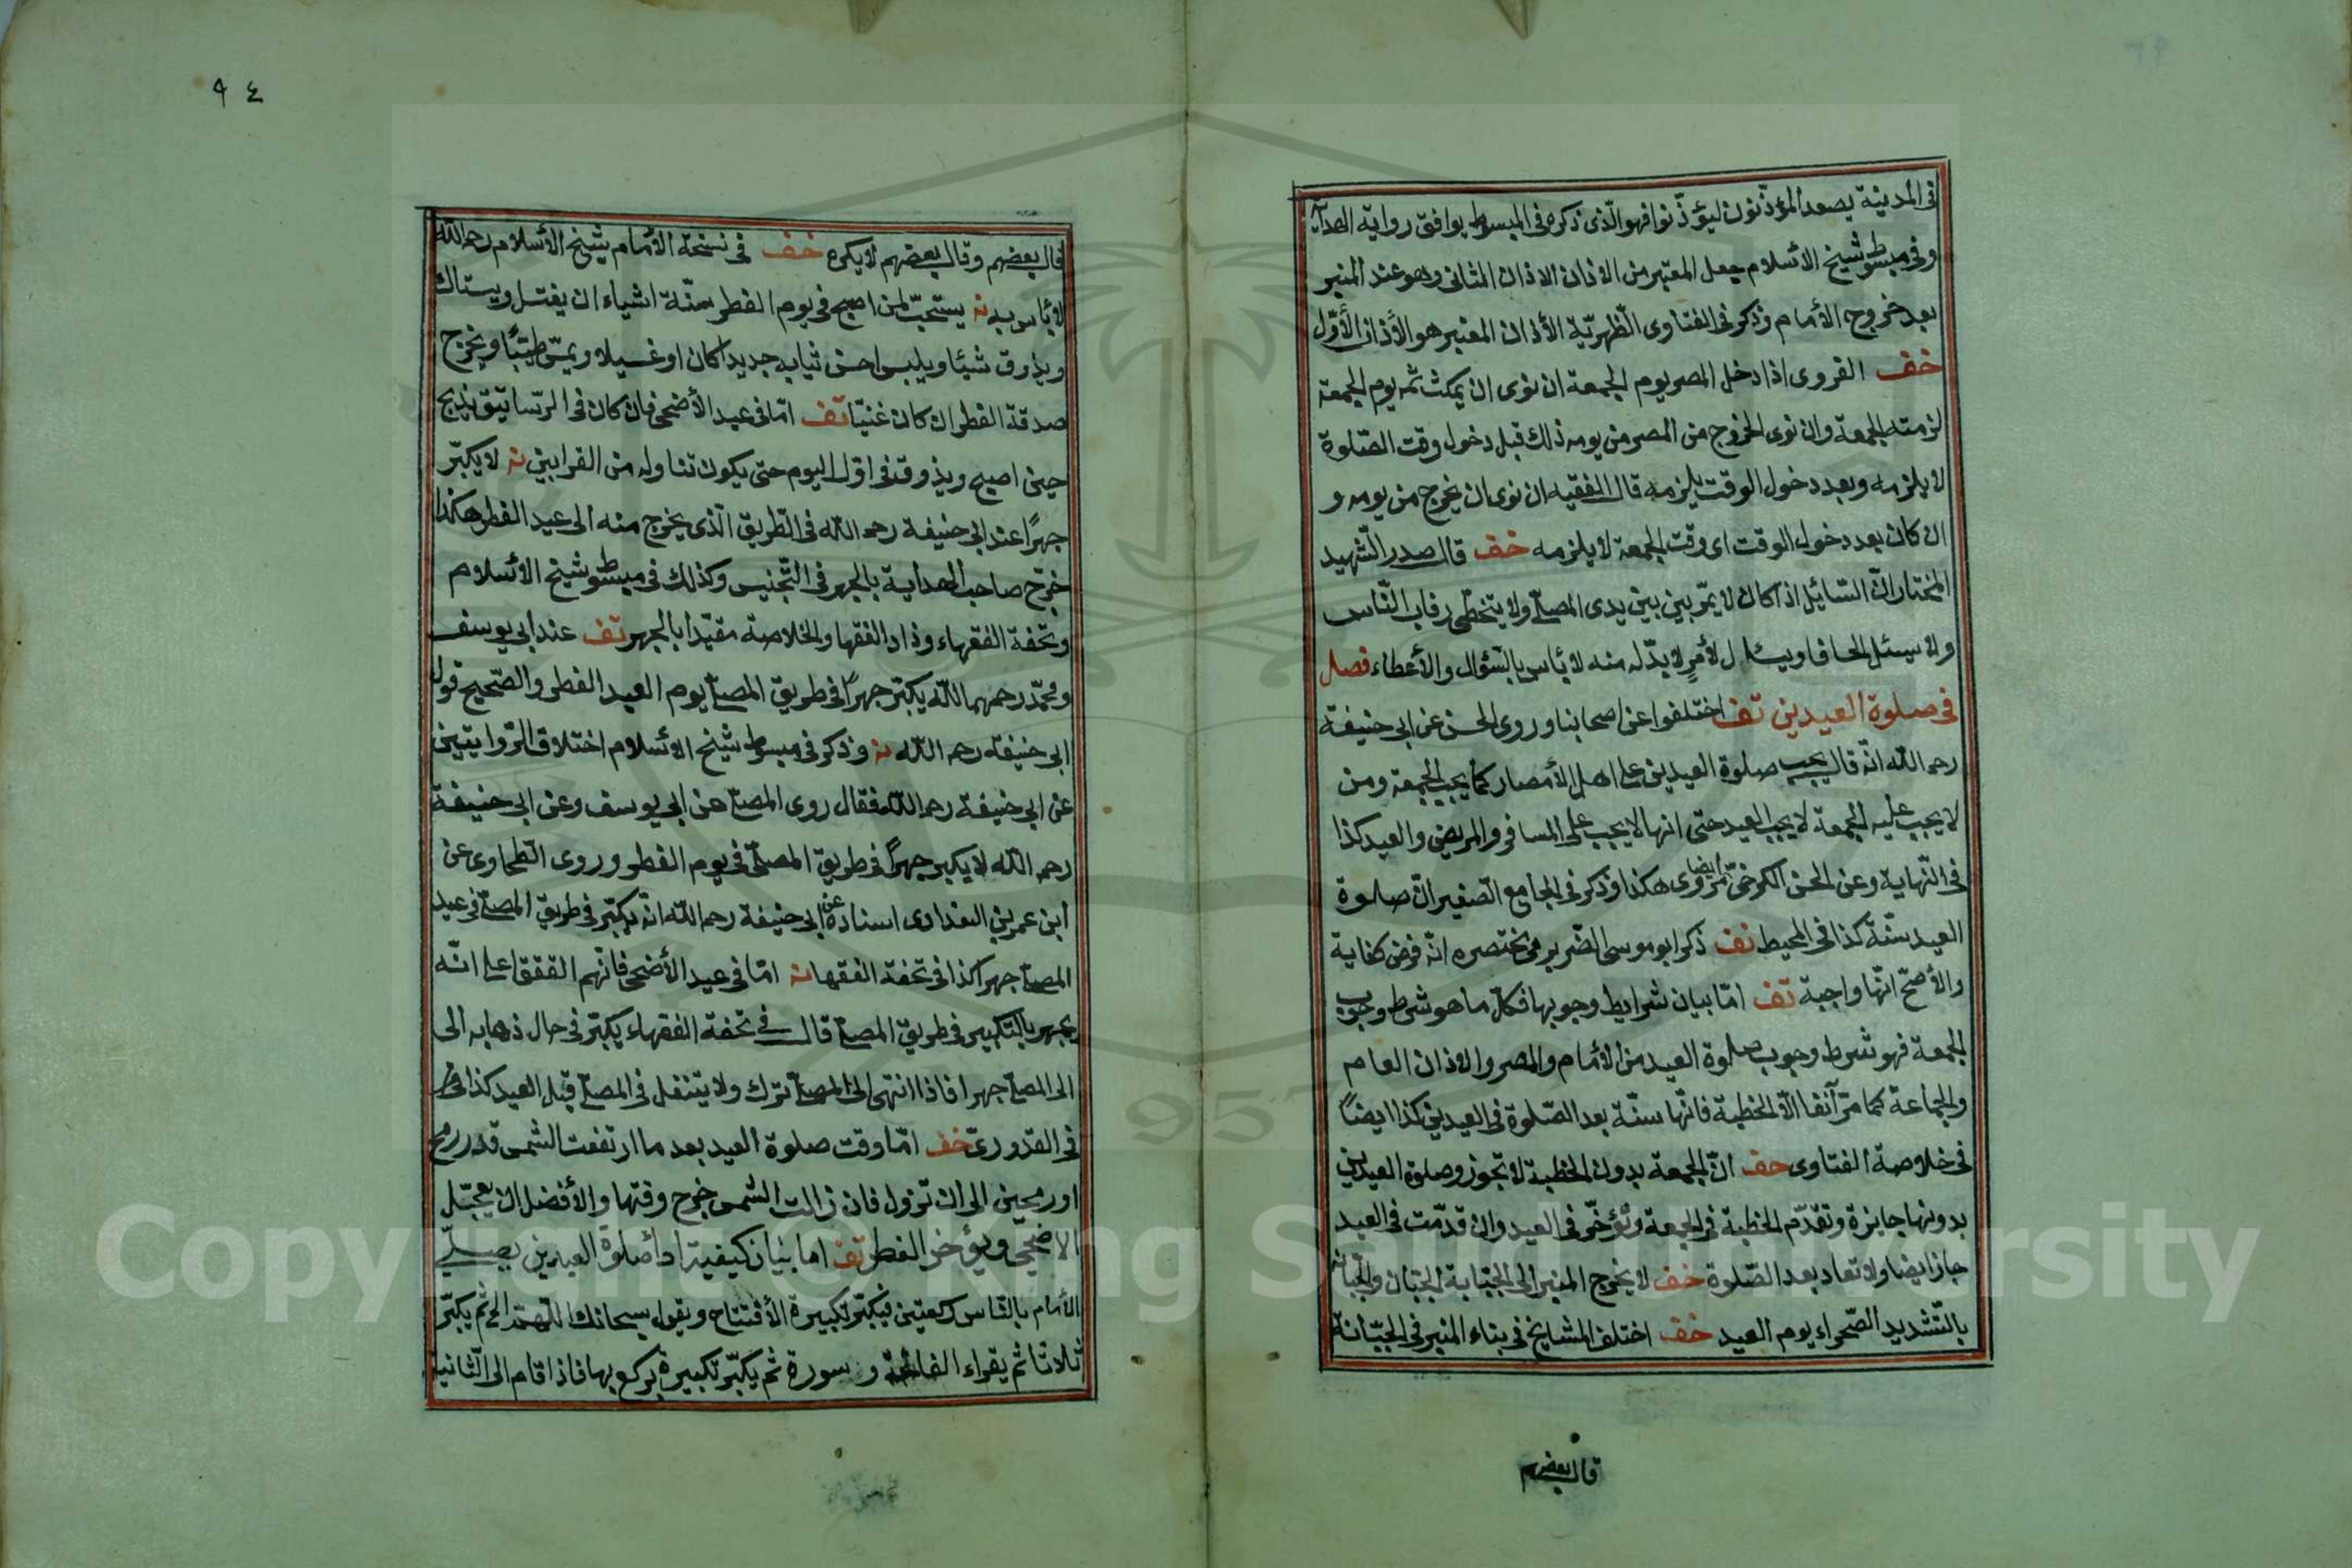 فى المدينة يصعد المؤذّنون ليؤذّنوا فهو الّذى ذكره فى المبسوط يوافق رواية الهداية
وفى مبسوط شيخ الأسلام جعل المعتبر من الاذان الاذان الثانى وهو عند المنبر
بعد خروج الأمام وذكر فى الفتاوى الظهريّة الأذان المعتبر هو الأذان الأوّل
خف القروى اذا دخل المصر يوم الجمعة ان نوى ان يمكث ثمه يوم الجمعة
لزمته الجمعة وان نوى الخروج من المصر من يومه ذلك قبل دخول وقت الصّلوة
لا يلزمه وبعد دخول الوقت يلزمه قال الفقيه ان نوى ان يخرج من يومه و
ان كان بعد دخول الوقت اى وقت الجمعة لا يلزمه خف قال صدر الشّهيد
المختار انّ السّائل اذا كان لا يمرّ بين بين يدى المصلّى ولا يتخطّى رقاب النّاس
ولا سيئل الحافا ويسئل لأمرٍ لا بدّ له منه لا بأس بالسّؤال والأعطاء فصل
فى صلوة العيدين تف اختلفوا عن اصحابنا وروى الحسن عن ابى حنيفة
رحمه اللّه انّه قال يجب صلوة العيدين على اهل الأمصار كما يجب الجمعة ومن
لا يجب عليه الجمعة لا يجب العيد حتى انها لا يجب على المسافر والمريض والعيد كذا
فى النّهاية وعن الحسن الكرخىّ ايضا مروى هكذا وذكر فى الجامع الصّغير انّ صلوة
العيد سنّة كذا فى المحيط نف ذكر ابو موسى الضّرير فى مختصره انّه فرض كفاية
والأصحّ انّها واجبة تف امّا بيان شرايط وجوبها فكل ما هو شرط وجوب
الجمعة فهو شرط وجوب صلوة العيد من الأمام والمصر والاذان العام
والجماعة كما مرّ آنفا الّا الخطبة فانّها سنّة بعد الصّلوة فى العيدين كذا ايضاً
فى خلاصة الفتاوى حف انّ الجمعة بدون الخطبة لا تجوز وصلوة العيدين
بدونها جايزة وتقدّم الخطبة فى الجمعة وتؤخّر فى العيد وان قدّمت فى العيد
جاز ايضا ولا تعاد بعد الصّلوة خف لا يخرج المنبر الى الجبّانة الجبّان والجبّانة
بالتّشديد الصّحراء يوم العيد خف اختلف المشايخ فى بناء المنبر فى الجبّانة
قال بعضهم
٩٤
قال بعضهم وقال بعضهم لا يكره خف فى نسخة الأمام شيخ الأسلام رحمه اللّه
لا بأس به نه يستحبّ لمن اصبح فى يوم الفطر ستّة اشياء ان يغتسل ويستاك
ويذوق شيئا ويلبس احسن ثيابه جديدا كان او غسيلا ويمسّ طيّبًا ويخرج
صدقة الفطر ان كان غنيّا تف امّا فى عيد الأضحى فان كان فى الرّساتيق يذبح
حين اصبح ويذوق فى اوّل اليوم حتى يكون تناوله من القرابين نه لا يكبّر
جهرًا عند ابى حنيفة رحمه اللّه فى الطّريق الّذى يخرج منه الى عيد الفطر هكذا
خرّج صاحب الهداية بالجهر فى التّجنيس وكذلك فى مبسوط شيخ الأسلام
وتحفة الفقهاء وزاد الفقها والخلاصة مقيّدا بالجهر تف عند ابى يوسف
ومحمّد رحمهما اللّه يكبّر جهرًا فى طريق المصلّى يوم العيد الفطر والصّحيح قول
ابى حنيفه رحمه اللّه نه وذكر فى مبسوط شيخ الأسلام اختلاف الرّوايتين
عن ابى حنيفة رحمه اللّه فقال روى المصلّى عن ابى يوسف وعن ابى حنيفة
رحمه اللّه لا يكبر جهراً فى طريق المصلّى فى يوم الفطر وروى الطّحاوى عن
ابن عمر بن البغدادى اسناده عن ابى حنيفة رحمه اللّه انّه يكبّر فى طريق المصلّى فى عيد
المصلّى جهرا كذا فى تحفة الفقها نه امّا فى عيد الأضحى فانّهم اتّفقوا على انّه
يجهر بالتّكبير فى طريق المصلّى قال فى تحفة الفقهاء يكبّر فى حال ذهابه الى
الى المصلّى جهرا فاذا انتهى الى المصلّى ترك ولا يتنفل فى المصلّى قبل العيد كذا
فى القدورىّ خف امّا وقت صلوة العيد بعد ما ارتفعت الشّمس قدر رمح
او رمحين الى ان تزول فان زالت الشّمس خرج وقتها والأفضل ان يعجّل
الاضحى ويؤخر الفطر تف اما بيان كيفية اداء صلوة العيدين يصلّى
الأمام بالنّاس ركعتين فيكبّر تكبيرة الأفتتاح ويقول سبحانك اللّهمّ الخ ثم يكبّر
ثلاثا ثم يقراء الفاتحة و سورة ثم يكبّر تكبيرة يركع بها فاذا قام الى الثّانية
Copyright © King Saud University
957